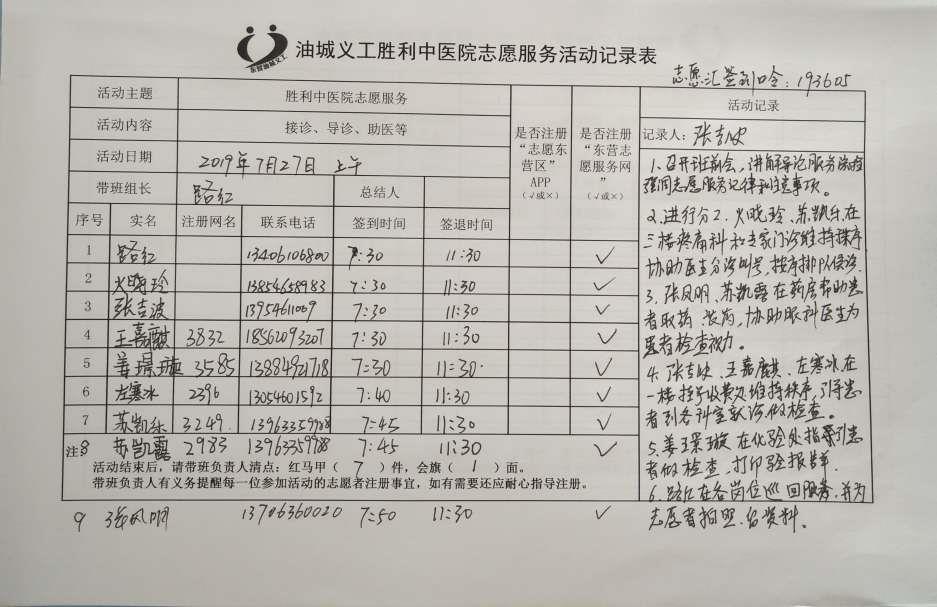 油城义工胜利中医院志愿服务活动记录表
东营油城义工
志愿汇签到口令：193605
活动主题 胜利中医院志愿服务
活动内容 接诊、导诊、助医等
活动日期 2019年7月27日 上午
带班组长 路红 总结人
序号 实名 注册网名 联系电话 签到时间 签退时间
是否注册“志愿东营区”APP（√或×）
是否注册“东营志愿服务网”（√或×）
1 路红 13406106800 7:30 11:30 √
2 火晓玲 13854658983 7:30 11:30 √
3 张吉波 13954611009 7:30 11:30 √
4 王嘉麒 3832 18562093207 7:30 11:30 √
5 姜璟璇 3585 13884921718 7:30 11:30 √
6 左寒冰 2396 13054601592 7:40 11:30 √
7 苏凯乐 3249 13963359988 7:45 11:30 √
注8 苏凯露 2983 13963359988 7:45 11:30 √
活动结束后，请带班负责人清点：红马甲（ 7 ）件，会旗（ 1 ）面。
带班负责人有义务提醒每一位参加活动的志愿者注册事宜，如有需要还应耐心指导注册。
9 张凤明 13706360020 7:50 11:30 √
活动记录
记录人：张吉波
1、召开班前会，讲解导诊服务流程
强调志愿服务纪律和注意事项。
2、进行分工，火晓玲、苏凯乐在
三楼疼痛科和专家门诊维持秩序
协助医生分诊叫号，按序排队候诊。
3、张凤明、苏凯露在药房帮助患
者取药、装药，协助眼科医生为
患者检查视力。
4、张吉波、王嘉麒、左寒冰在
一楼挂号收费处维持秩序，引导患
者到各科室就诊做检查。
5、姜璟璇在化验处指导引患
者做检查，打印验报告单。
6、路红在各岗位巡回服务，并为
志愿者拍照，留资料。